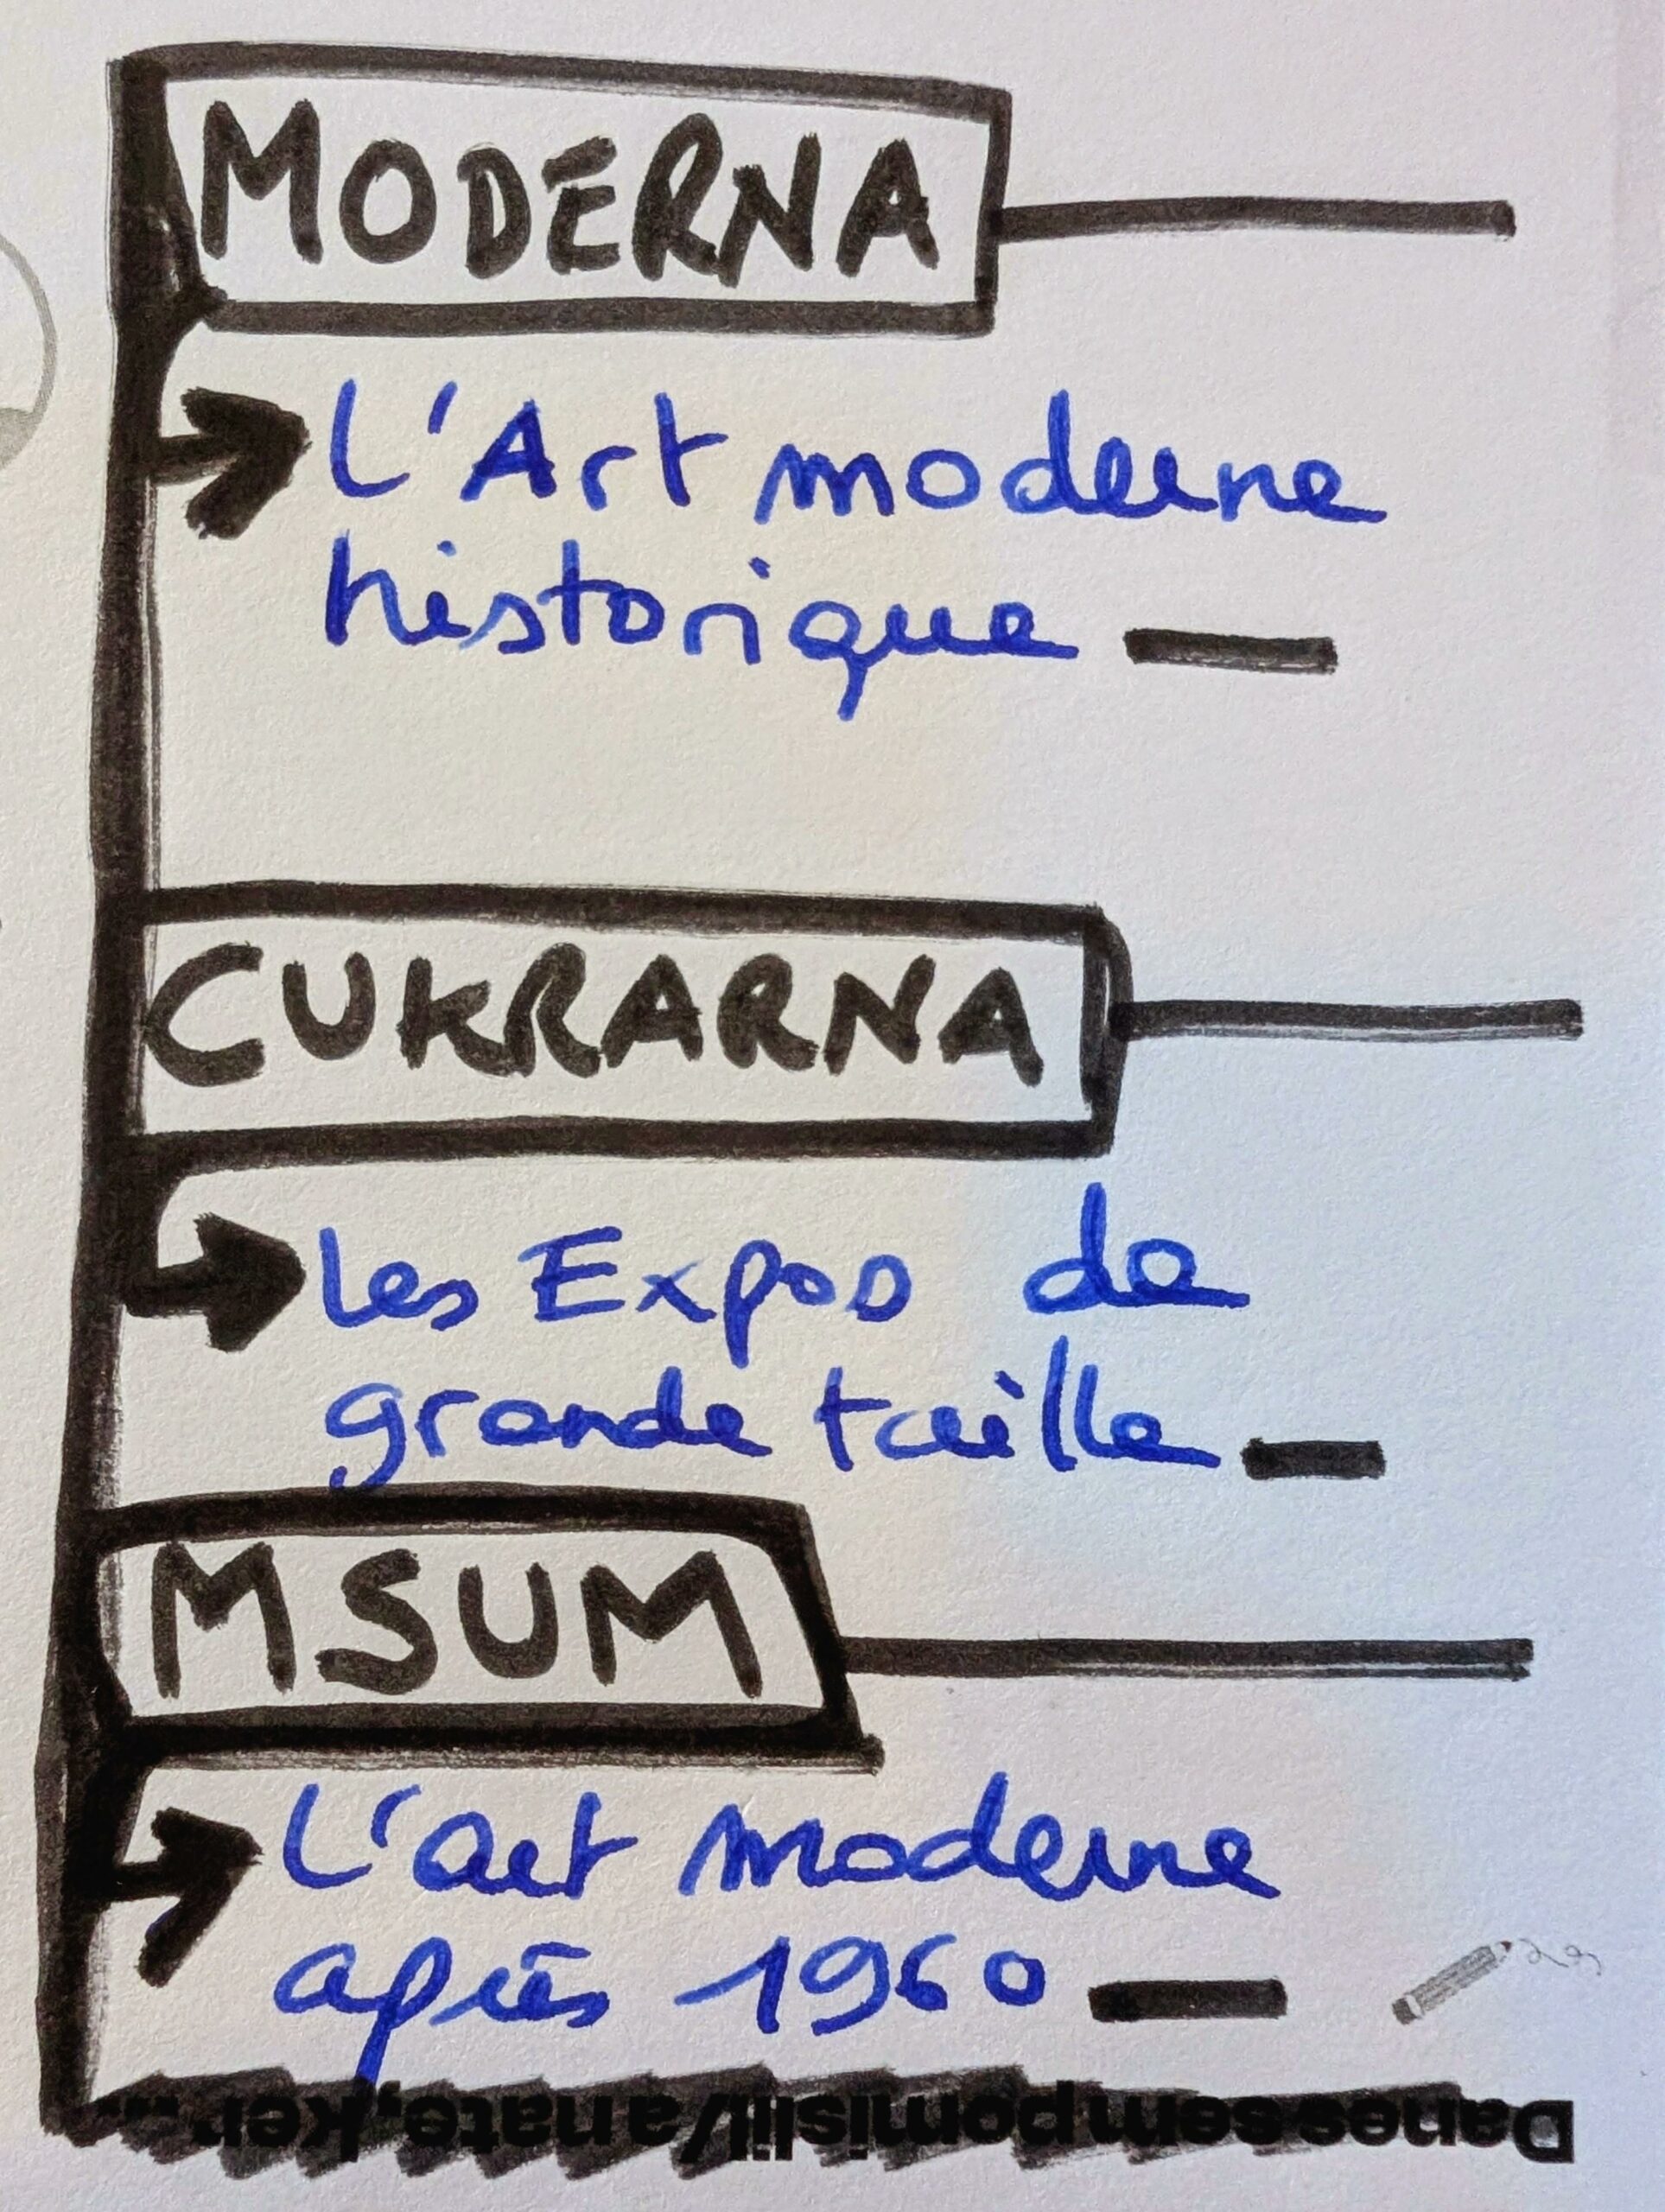 MODERNA
L'Art moderne
historique
CUKRARNA
les Expos de
grande taille
MSUM
L'art moderne
après 1960
Danes sem pomislil/a nate, ker ...